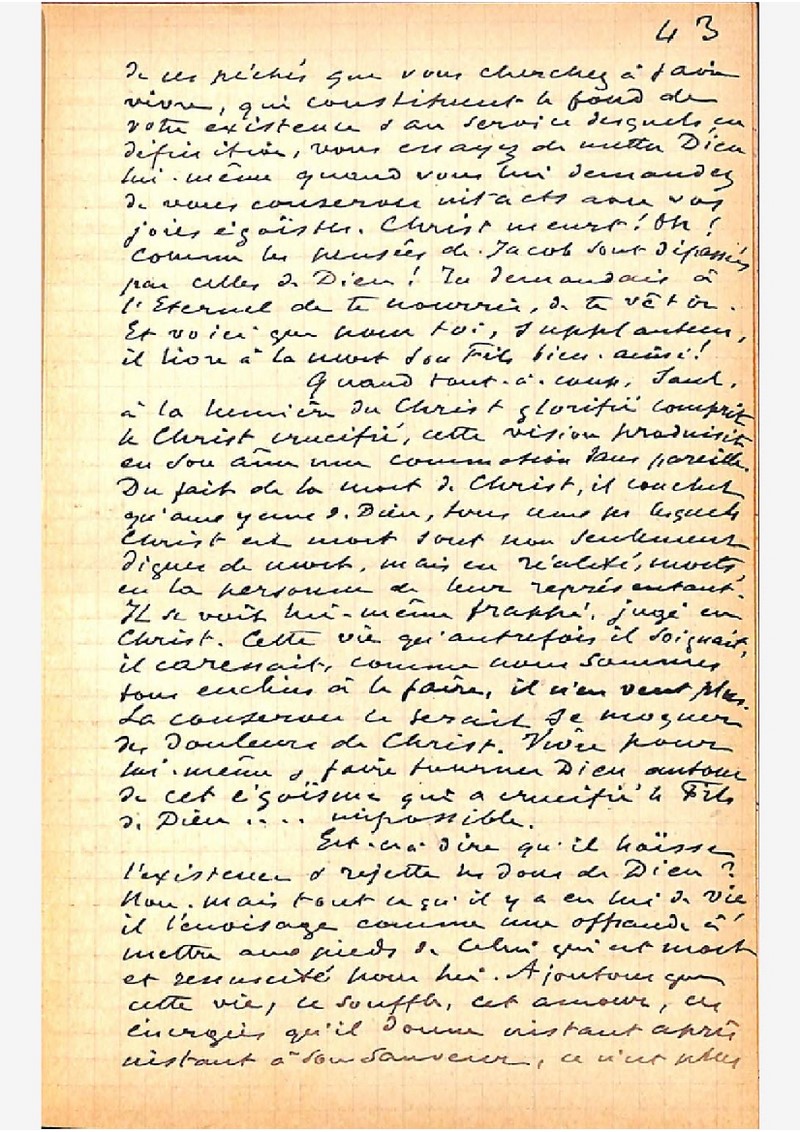 43
de ces péchés que vous cherchez à faire
vivre, qui constituent le fond de
votre existence & au service desquels, en
définitive, vous essayez de mettre Dieu
lui-même quand vous lui demandez
de vous conserver intacts avec vos
joies égoïstes. Christ meurt! Oh!
Comme les pensées de Jacob sont dépassées
par celles de Dieu! Tu demandais à
l'Eternel de te nourrir, de te vêtir.
Et voici que pour toi, supplanteur,
il livre à la mort son Fils bien-aimé!
Quand tout-à-coup, Saul,
à la lumière du Christ glorifié comprit
le Christ crucifié, cette vision produisit
en son âme une commotion sans pareille.
Du fait de la mort de Christ, il conclut
qu'aux yeux de Dieu, tous ceux pr lesquels
Christ est mort sont non seulement
dignes de mort, mais en réalité, morts
en la personne de leur représentant.
Il se voit lui-même frappé, jugé en
Christ. Cette vie qu'autrefois il soignait,
il caressait, comme nous sommes
tous enclins à le faire, il n'en veut plus.
La conserver ce serait se moquer
des douleurs de Christ. Vivre pour
lui-même & faire tourner Dieu autour
de cet égoïsme qui a crucifié le Fils
de Dieu .... impossible.
Est-ce à dire qu'il haïsse
l'existence & rejette les dons de Dieu?
Non. mais tout ce qu'il y a en lui de vie
il l'envisage comme une offrande à
mettre aux pieds de Celui qui est mort
et ressuscité pour lui. Ajoutons que
cette vie, ce souffle, cet amour, ces
énergies qu'il donne instant après
instant à son Sauveur, ce n'est plus